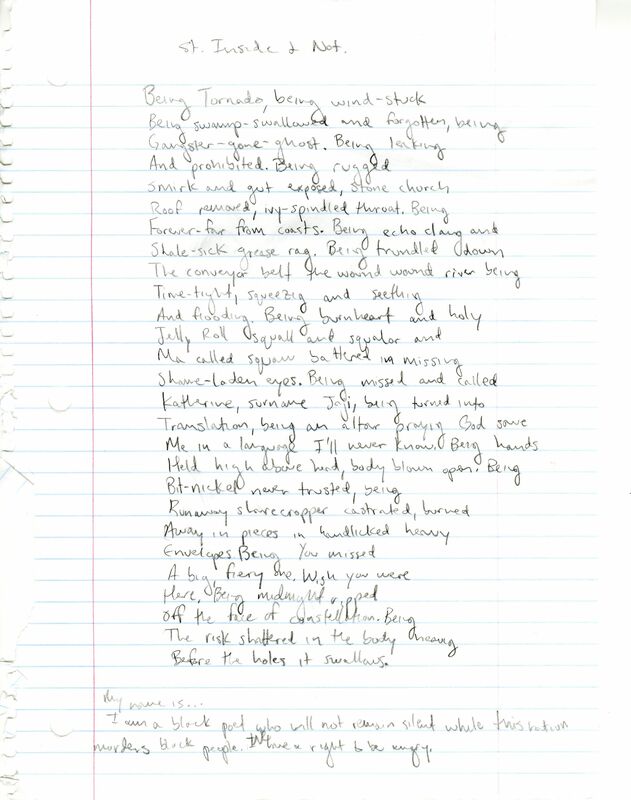 St. Inside & Not.
Being Tornado, being wind-stuck
Being swamp-swallowed and forgotten, being
Gangster-gone-ghost. Being leaking
And prohibited. Being rugged
Smirk and gut exposed, stone church
Roof removed, ivy-spindled throat. Being
Forever-far from coasts. Being echo clang and
Shale-sick grease rag. Being trundled down
The conveyor belt the wound wound river being
Time-tight, squeezig and seething
And flooding. Being burnheart and holy
Jelly Roll squall and squalor and
Ma called squaw battered in missing
Shame-laden eyes. Being missed and called
Katherine, surname Jaji, being turned into
Translation, being an altar praying God save
Me in a language I'll never know. Being hands
Held high above head, body blown open. Being
Bit-nickel never trusted, being
Runaway sharecropper castrated, burned
Away in pieces in handlicked heavy
Envelopes Being You missed
A big, fiery one. Wish you were
Here. Being midnight ripped
Off the face of constellation. Being
The risk shattered in the body
Before the holes it swallows.
My name is...
I am a black poet who will not remain silent while this nation
murders black people. I have a right to be angry.